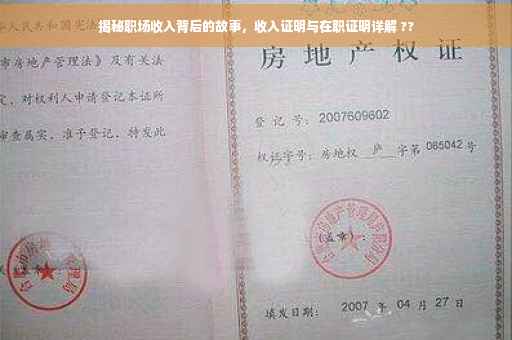 揭秘职场收入背后的故事，收入证明与在职证明详解 ??
人民共和国宪法》
市房地产管理法》及有关法
定，对权利人申请登记本证所
审查属实，准予登记，特发此
房地产权证
登记号：2007609602
权证字号：房地权 庐 字第 085042 号
(盖章)：
填发日期：2007 年 04 月 27 日